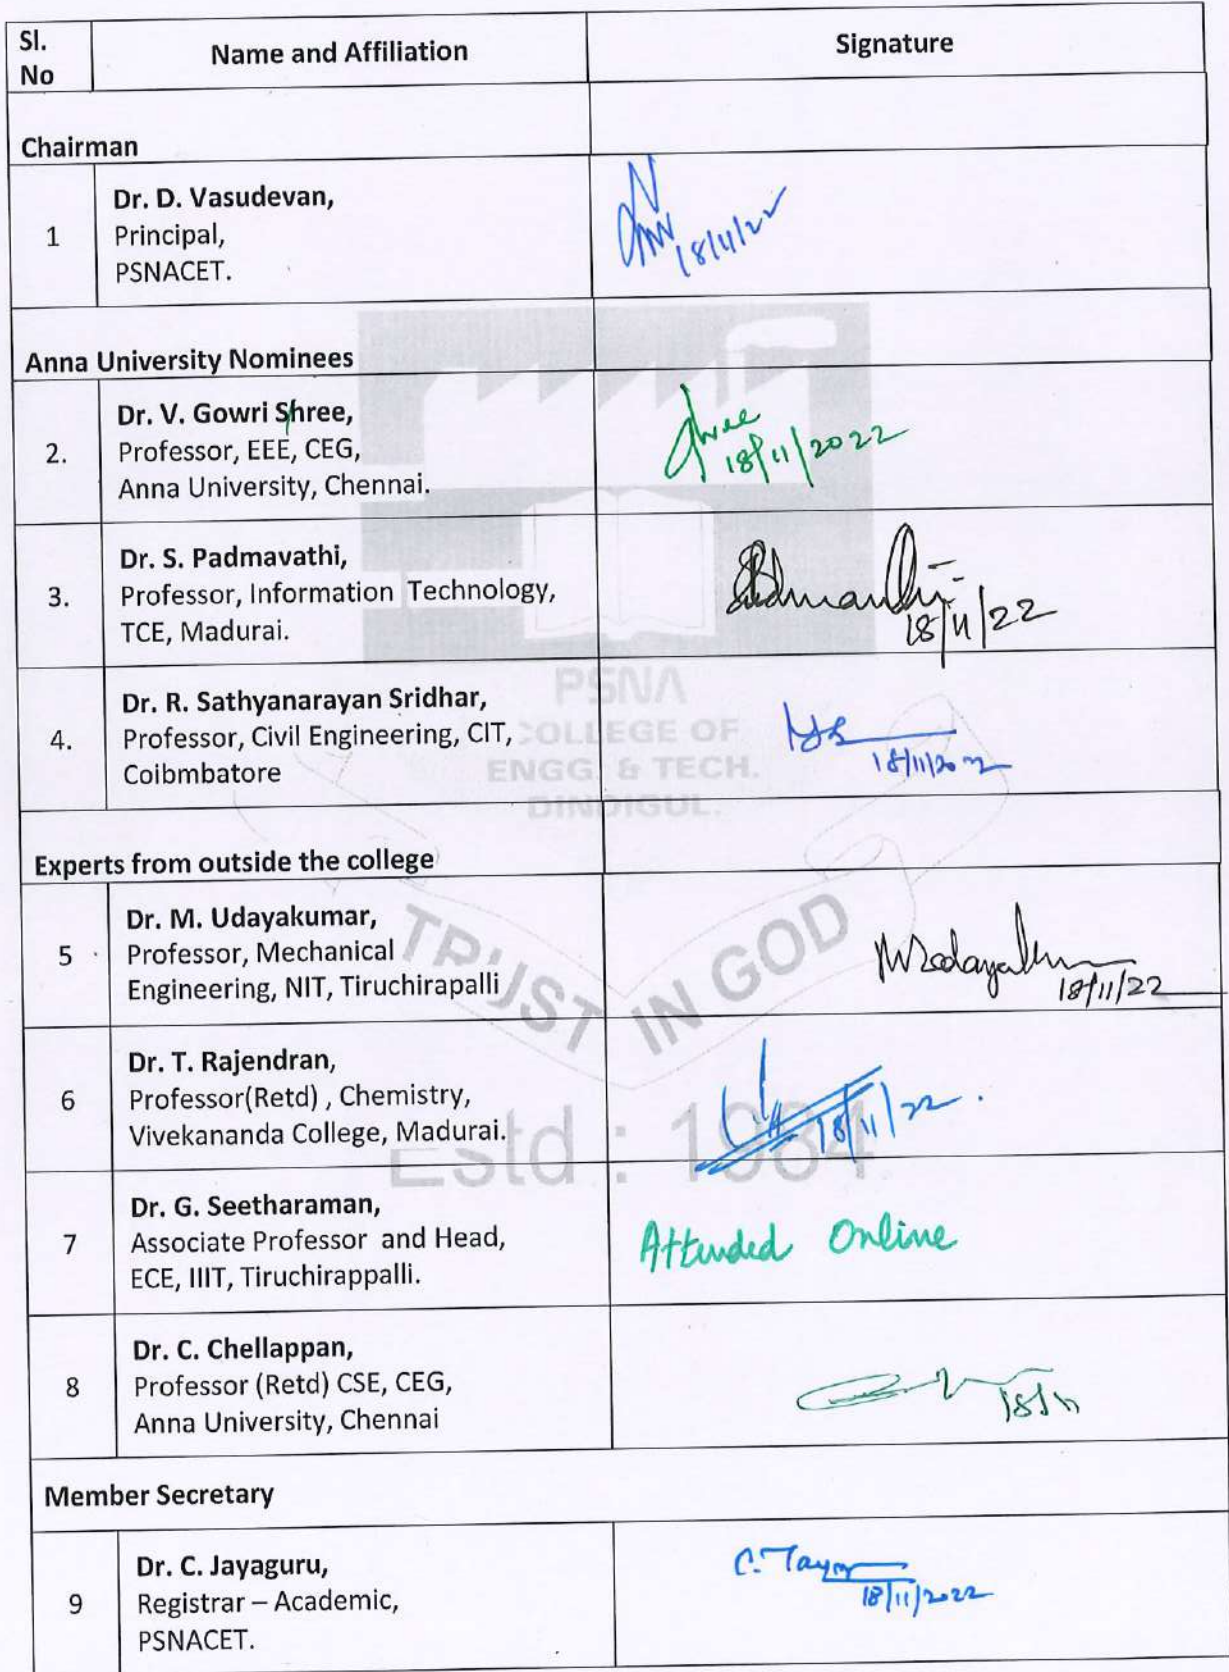 Sl. No
Name and Affiliation
Signature
Chairman
1
Dr. D. Vasudevan,
Principal,
PSNACET.
18/11/22
Anna University Nominees
2.
Dr. V. Gowri Shree,
Professor, EEE, CEG,
Anna University, Chennai.
Shree
18/11/2022
3.
Dr. S. Padmavathi,
Professor, Information Technology,
TCE, Madurai.
18/11/22
4.
Dr. R. Sathyanarayan Sridhar,
Professor, Civil Engineering, CIT,
Coibmbatore
18/11/2022
PSNA
COLLEGE OF
ENGG. & TECH.
DINDIGUL.
Experts from outside the college
5
Dr. M. Udayakumar,
Professor, Mechanical
Engineering, NIT, Tiruchirapalli
18/11/22
TRUST IN GOD
6
Dr. T. Rajendran,
Professor(Retd) , Chemistry,
Vivekananda College, Madurai.
18/11/22.
Estd : 1984
7
Dr. G. Seetharaman,
Associate Professor and Head,
ECE, IIIT, Tiruchirappalli.
Attended Online
8
Dr. C. Chellappan,
Professor (Retd) CSE, CEG,
Anna University, Chennai
18/11
Member Secretary
9
Dr. C. Jayaguru,
Registrar – Academic,
PSNACET.
18/11/2022